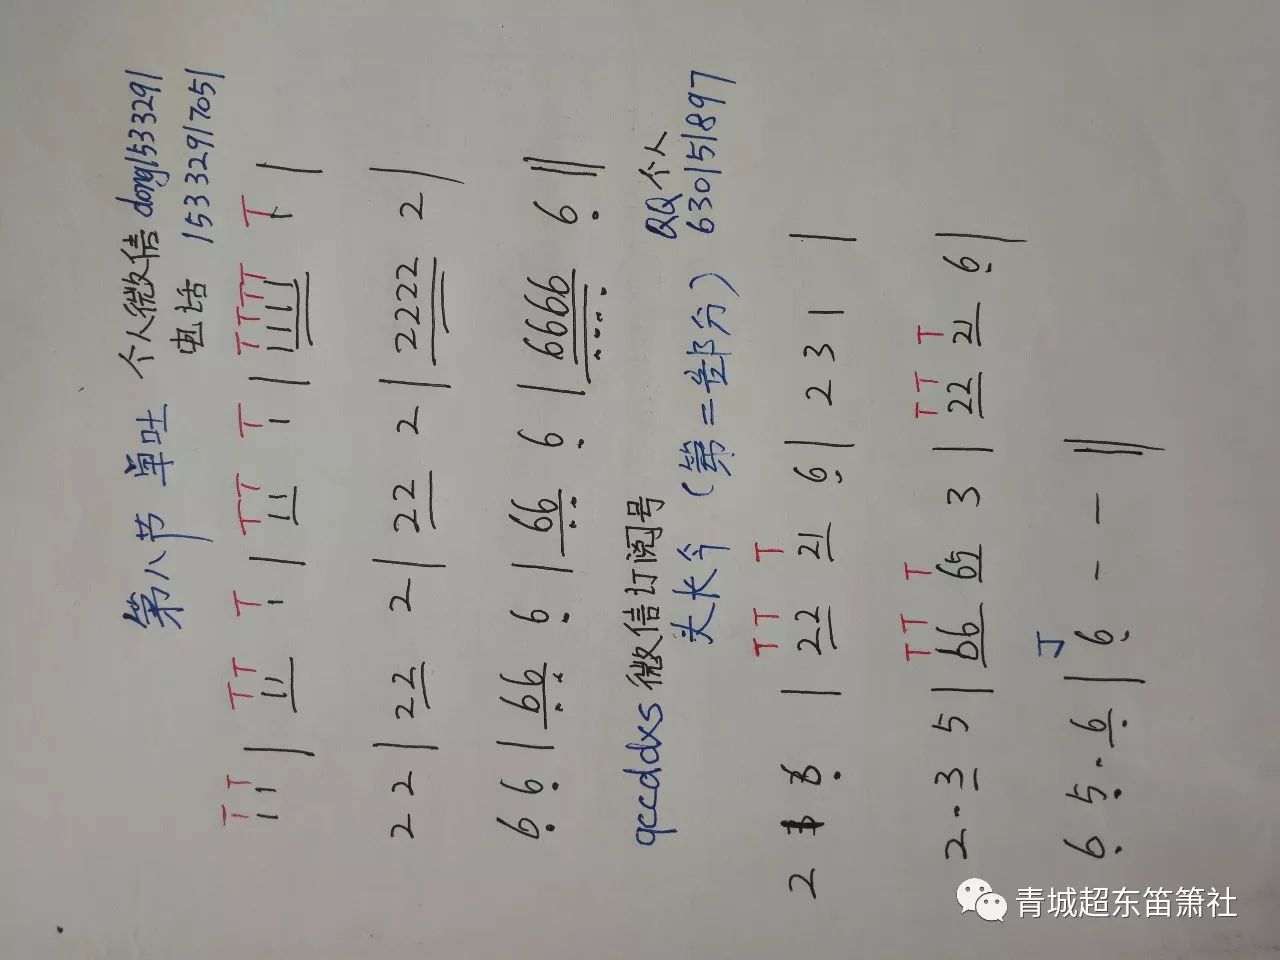 第八节 单吐 个人微信 dong1533291
电话 15332917051
T T TT T TT T TTTT T
1 1 | 11 1 | 11 1 | 1111 1 |
2 2 | 22 2 | 22 2 | 2222 2 |
6 6 | 66 6 | 66 6 | 6666 6 ‖
qccddxs 微信订阅号 QQ个人
头长兮 (第二部分) 630151897
TT T
2 6 | 22 21 6 | 2 3 1 |
TT T TT T
2·3 5 | 66 65 3 | 22 21 6 |
T
6 5·6 | 6 - - ‖
青城超东笛箫社